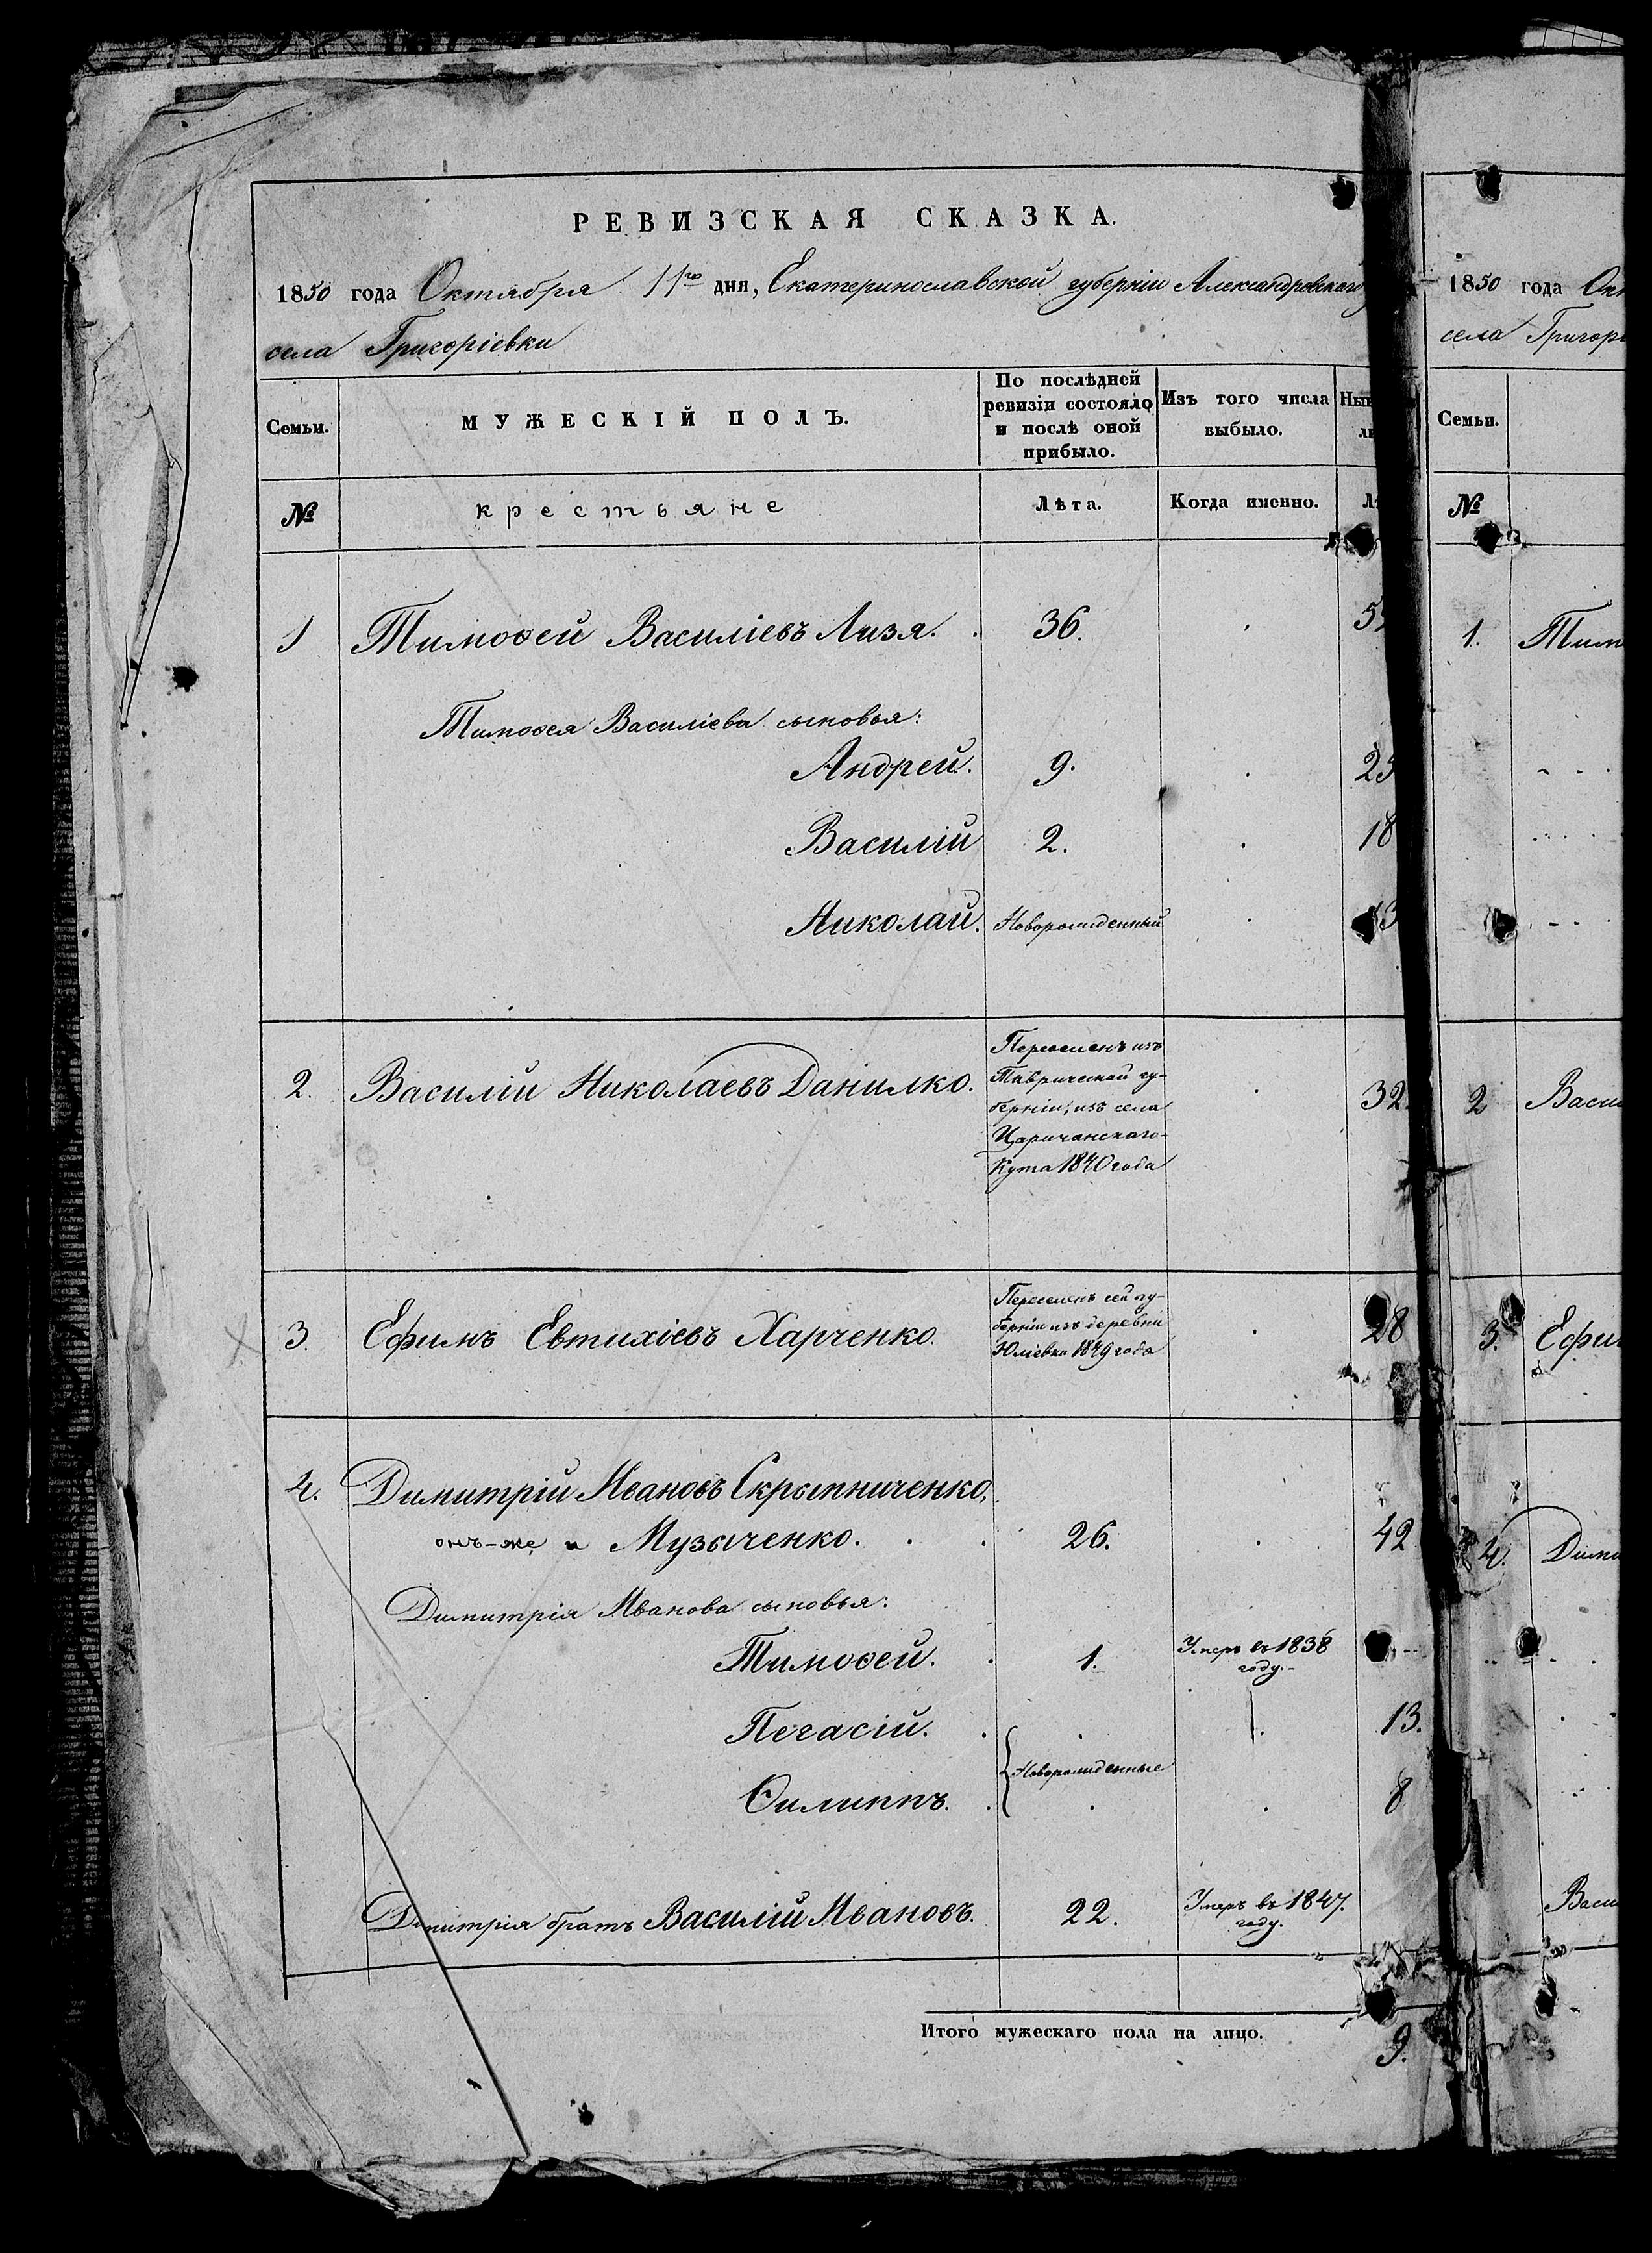 РЕВИЗСКАЯ СКАЗКА.
1850 года Октября 11го дня, Екатеринославской губерніи Александровскаго
села Григоріевки
Семьи.
МУЖЕСКІЙ ПОЛЪ.
По послѣдней
ревизіи состояло
и послѣ оной
прибыло.
Изъ того числа
выбыло.
№
крестьяне
Лѣта.
Когда именно.
1 Тимоѳей Василіевъ Лизя. 36.
Тимоѳея Василіева сыновья:
Андрей. 9.
Василій 2. 18
Николай. Новорожденный 13
2. Василій Николаевъ Данилко. 32.
Переселенъ изъ
Таврической гу-
берніи, изъ села
Царичанскаго-
Кута 1840 года
3. Ефимъ Евтихіевъ Харченко. 28
Переселенъ сей гу-
берніи изъ деревни
Юліевки 1849 года
4. Димитрій Ивановъ Скрыпниченко,
онъ-же и Музыченко. 26. 42
Димитрія Иванова сыновья:
Тимоѳей. 1. Умеръ въ 1838
году.-
Пегасій. 13.
Новорожденные
Ѳилиппъ. 8
Димитрія братъ Василій Ивановъ. 22. Умеръ въ 1847.
году.
Итого мужескаго пола на лицо.
9.
1850 года
села
Семьи.
№
1.
2
3.
4.